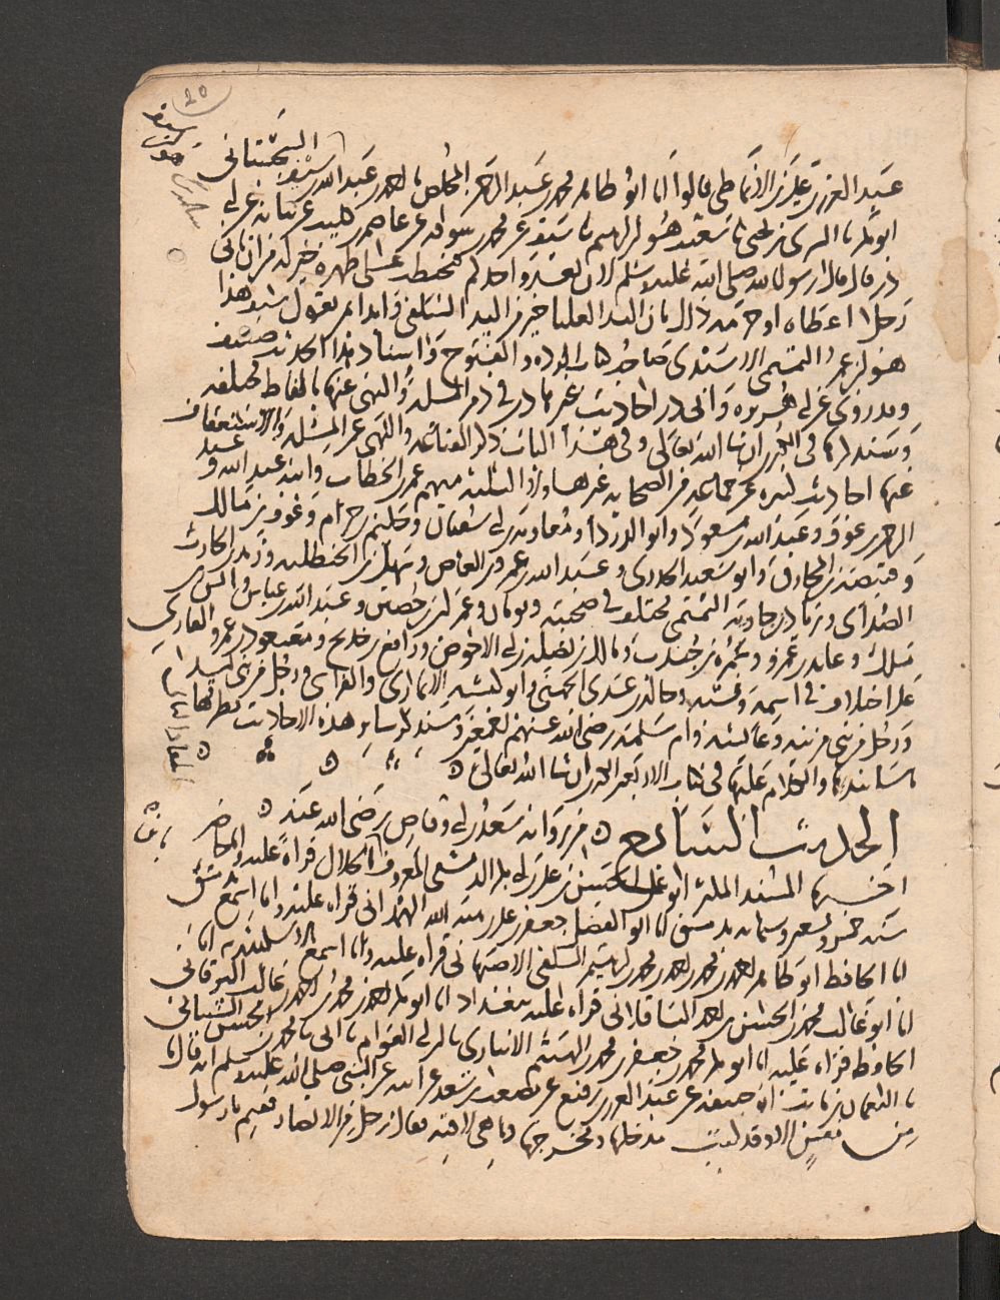 ٢٥
السجستاني
عبد العزيز بن علي الانماطي قالوا انا ابو طاهر محمد بن عبد الرحمن المخلص نا احمد بن عبد الله بن سيف
ابو بكر نا السري بن يحيى نا شعيب هو ابن ابرهيم نا سيف عن محمد بن سوقه عن عاصم بن كليب عن
ذر قال قال رسول الله صلى الله عليه وسلم لان يغدو احدكم فيحتطب على ظهره خير له من ان ياتي
رجلا اعطاه او حرمه ذلك بان اليد العليا خير من اليد السفلى وابدا بمن تعول سيف هذا
هو ابن عمر التميمي الاسيدي صاحب كتاب الرده والفتوح واسناد هذا الحديث ضعيف
وقد روي عن ابي هريره وابي ذر احاديث غير هذا في ذم المسله والنهي عنها بالفاظ مختلفه
وسنذكرها في ان شاء الله تعالى وفي هذا الباب ذكر القناعه والنهي عن المسله والاستعفاف
عنها احاديث كثيره عن جماعه من الصحابه غير هاولاء الثلثه منهم عمر بن الخطاب وابنه عبد الله وعبد
الرحمن بن عوف وعبد الله بن مسعود وابو الدرداء ومعاويه بن ابي سفيان وحكيم بن حزام وعوف بن مالك
وقبيصه بن المخارق وابو سعيد الخدري وعبد الله بن عمرو بن العاص وسهل بن الحنظليه وزياد بن الحارث
الصدائي وزياد بن جاريه التميمي مختلف في صحبته وثوبان وعمران بن حصين وعبد الله بن عباس وانس بن
مالك وعائذ بن عمرو وسمره بن جندب ومالك بن نضله ابي الاحوص ورافع بن خديج ومسعود بن عمرو القاري
على اختلاف في اسمه ونسبه وخالد بن عدي الجهني وابو كبشه الانماري والفراسي ورجل من بني اسد
ورجل من بني مزينه وعائشه وام سلمه رضي الله عنهم اجمعين وسنذكر سائر هذه الاحاديث بطرقها
باسانيدها والكلام عليها في كتاب الاربعين ان شاء الله تعالى
الحديث السابع من روايه سعد بن ابي وقاص رضي الله عنه
اخبرنا المسند المكثر ابو علي الحسن بن علي بن ابي بكر الدمشقي المعروف بابن الخلال قراءة عليه وانا حاضر
سنه خمس وتسعين وستمائه بدمشق انا ابو الفضل جعفر بن علي بن هبه الله الهمداني قراه عليه وانا اسمع بدمشق
انا الحافظ ابو طاهر احمد بن محمد بن احمد بن محمد بن ابرهيم السلفي الاصبهاني قراه عليه وانا اسمع بالاسكندريه انا
انا ابو غالب محمد بن الحسن بن احمد الباقلاني قراه عليه ببغداد انا ابو بكر احمد بن محمد بن احمد بن غالب البرقاني
الحافظ قراه عليه انا ابو بكر محمد بن جعفر بن محمد بن الهيثم الانباري نا ابن ابي العوام نا ابي نا محمد بن الحسن الشيباني
نا النعمان بن ثابت ابو حنيفه عن عبد العزيز بن رفيع عن مصعب بن سعد عن ابيه عن النبي صلى الله عليه وسلم انه قال ما
من نفس الا وقد كتب مدخلها ومخرجها وما هي لاقيه فقال رجل من الانصار ففيم يا رسول